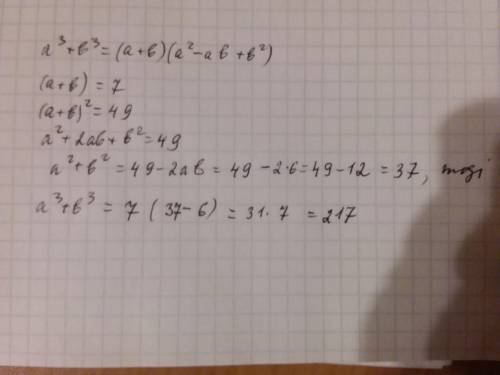 a³+b³=(a+b)(a²-ab+b²)
(a+b)=7
(a+b)²=49
a²+2ab+b²=49
a²+b²=49-2ab=49-2·6=49-12=37, тоді
a³+b³=7(37-6)=31·7=217